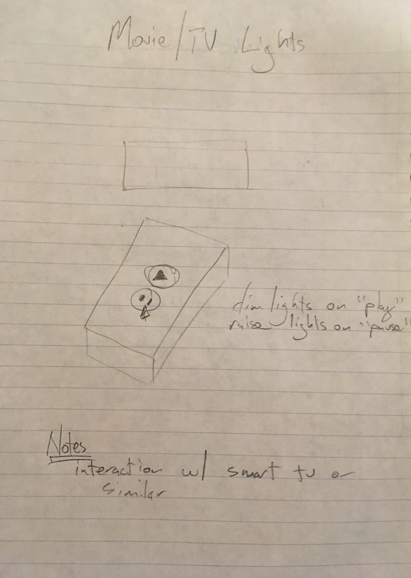 Movie/TV Lights
dim lights on "play"
raise lights on "pause"
Notes
interaction w/ smart tv or
similar